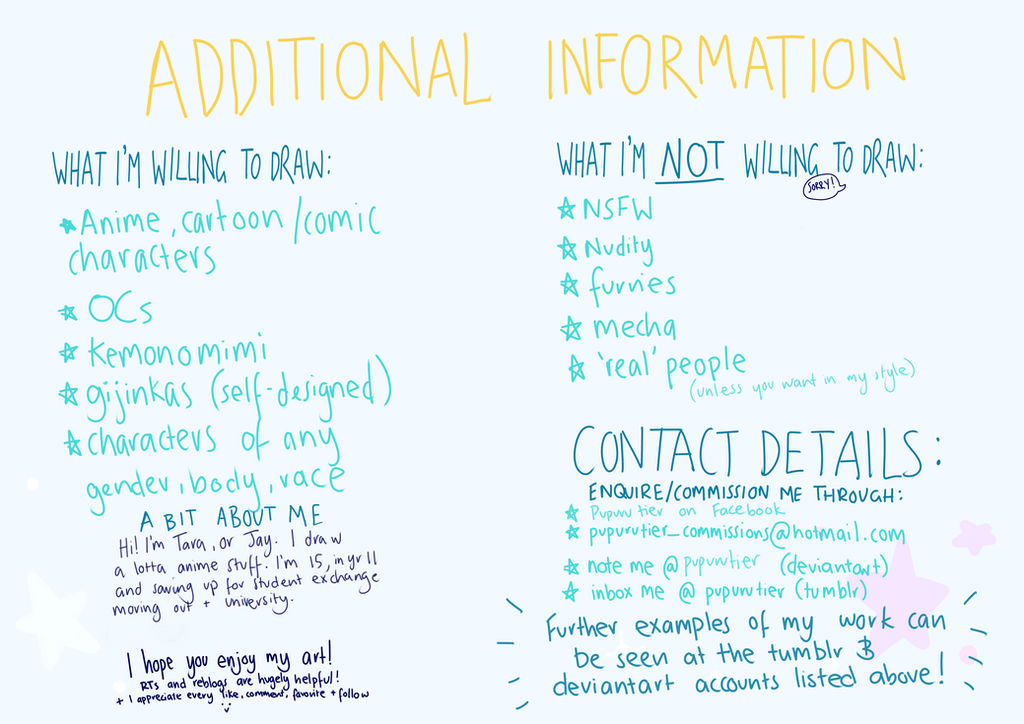 ADDITIONAL INFORMATION
WHAT I'M WILLING TO DRAW:
Anime, cartoon/comic
characters
OCs
Kemonomimi
gijinkas (self-designed)
characters of any
gender, body, race
A BIT ABOUT ME
Hi! I'm Tara, or Jay. I draw
a lotta anime stuff. I'm 15, in yr 11
and saving up for student exchange
moving out + university.
I hope you enjoy my art!
RTs and reblogs are hugely helpful!
+ I appreciate every like, comment, favorite + follow
WHAT I'M NOT WILLING TO DRAW:
SORRY!
NSFW
Nudity
furries
mecha
'real' people
(unless you want in my style)
CONTACT DETAILS:
ENQUIRE/COMMISSION ME THROUGH:
Pupurutier on Facebook
pupurutier_commissions@hotmail.com
note me @pupurutier (deviantart)
inbox me @ pupurutier (tumblr)
Further examples of my work can
be seen at the tumblr &
deviantart accounts listed above!